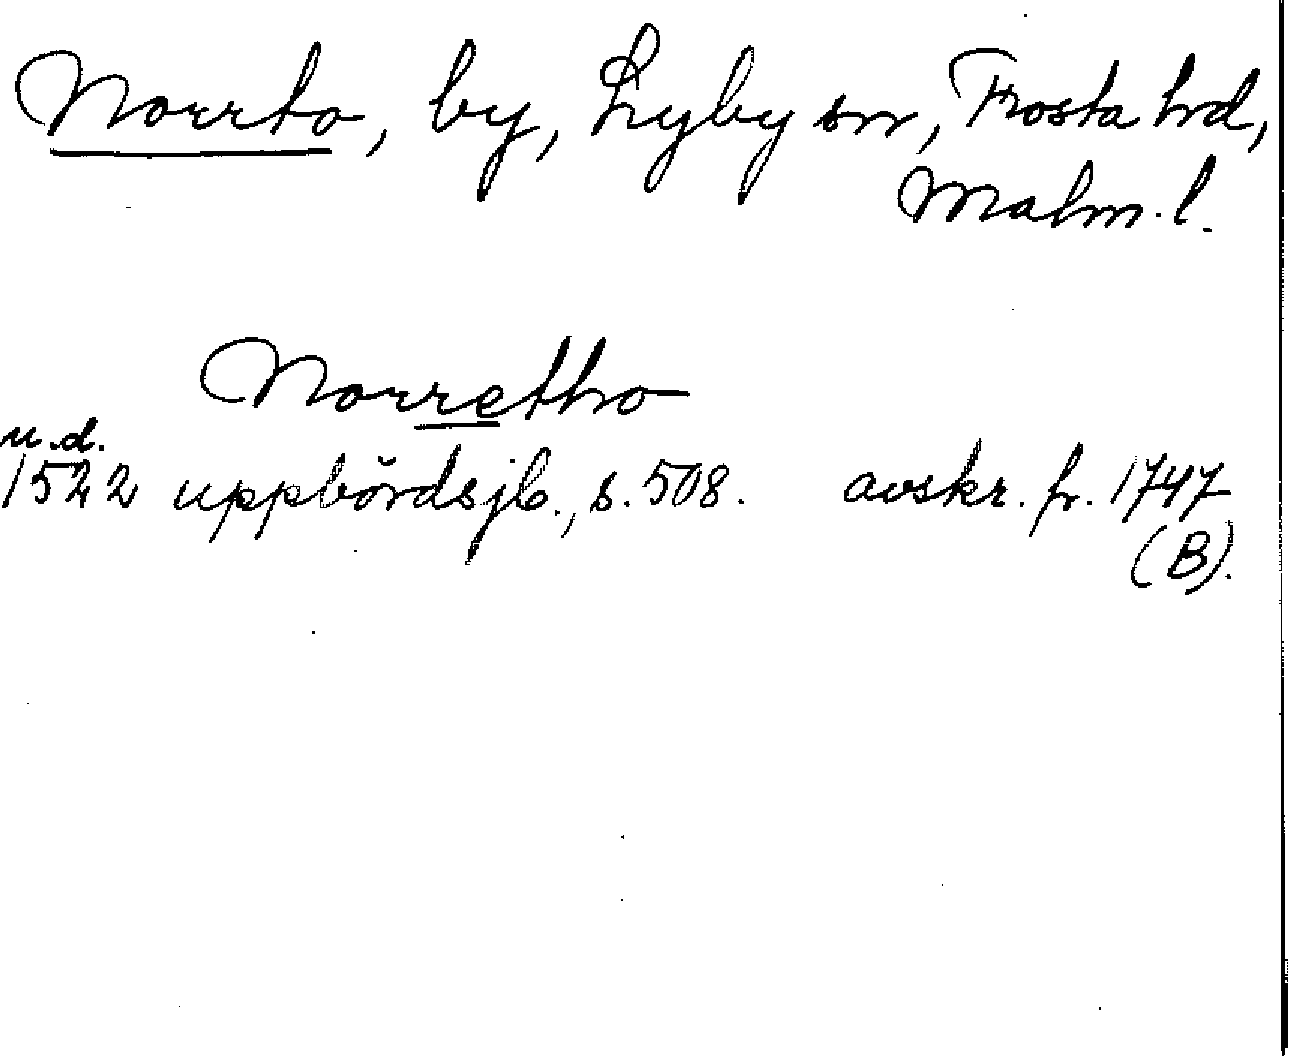 Norrto, by, Lyby sn, Frosta hrd,
Malm. l.
Norretho
u.d.
1522 uppbördsjb., s. 508. avskr. fr. 1747
(B).